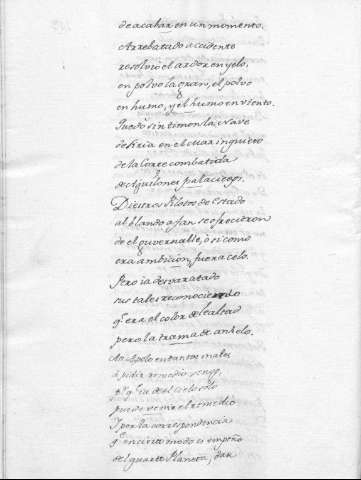 de acabar en un momento.
Arrebatado accidente
resolvió el ardor en yelo,
en polvo la gran, el polvo
en humo, y el humo en viento.
Quedó sin timon la Nave
de Siria en el mar inquieto
de la Corte combatida
de Aquilones palaciegos.
Diestros Pilotos de Estado
al blando afan se ofrecieron
de el guvernalle, ò si como
era ambicion, fuera celo.
Pero ia desvaratado
sus tales reconociendo
q.e era el color de lealtad
pero la trama de anhelo.
A Apolo en tantos males
à pidir remedio
q.e de el cielo solo
puede venir el remedio
Y por la correspondencia
q.e en cierto modo es empeño
del quarto Planeta, dan